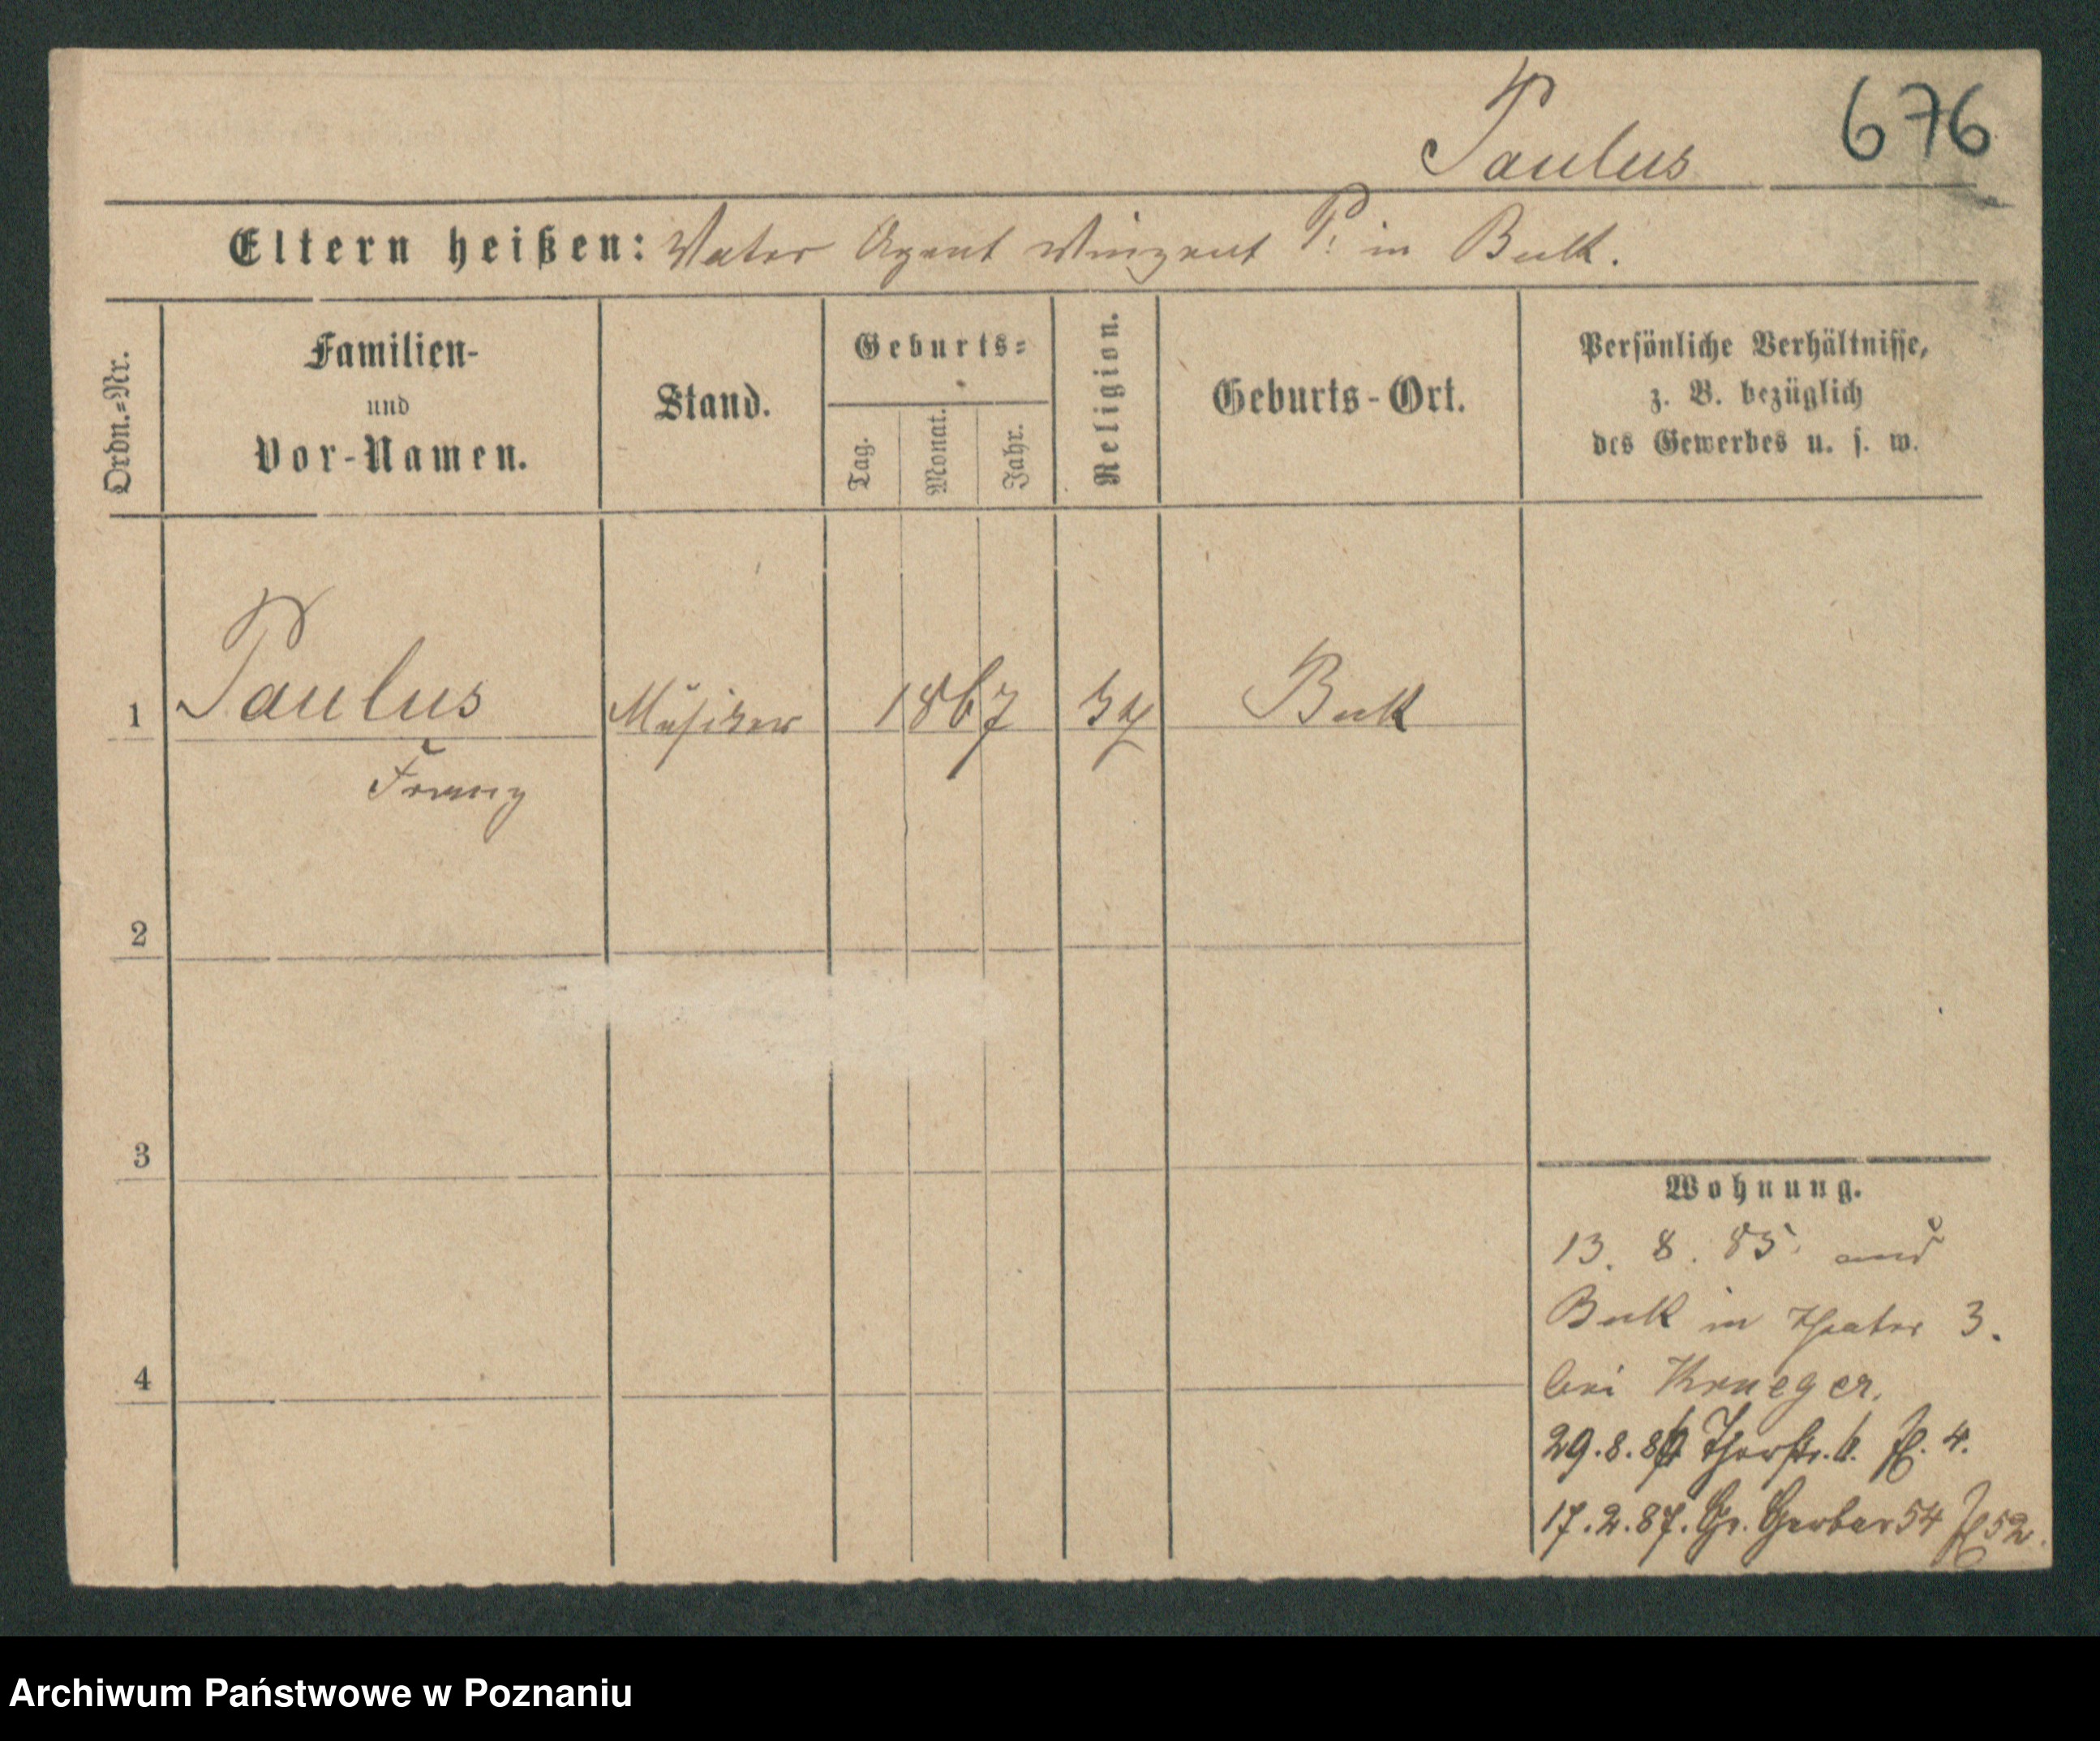 Paulus 676
Eltern heißen: Vater Agent Vinzent P. in Buk.
Ordn.=Nr.
Familien- und Vor-Namen.
Stand.
Geburts=
Tag. Monat. Jahr.
Religion.
Geburts-Ort.
Persönliche Verhältnisse,
z. B. bezüglich
des Gewerbes u. s. w.
1 Paulus Musiker 1867 Buk
Franz
2
3
4
Wohnung.
13. 8. 85. aus
Buk in Theater 3.
bei Krueger.
29.8.86 Thorstr. 4.
17.2.87. Gr. Gerber 54 52.
Archiwum Państwowe w Poznaniu